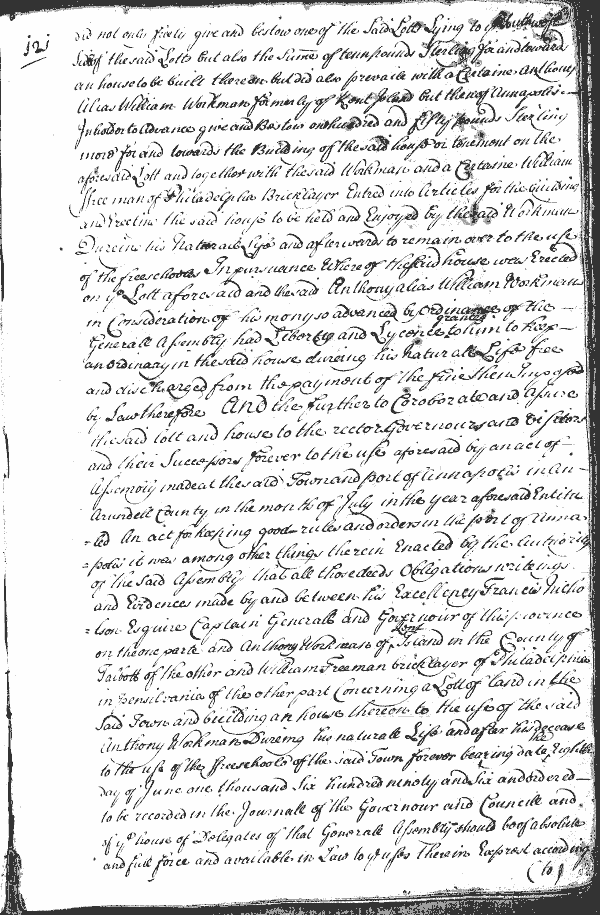 121
did not only freely give and bestow one of the said Lotts Lying to ye
Side of the said Lotts but also the Summe of tenn pounds Sterling for and toward
an house to be built thereon but did also prevaile with a Certaine Anthony
Alias William Workman formerly of Kent Island but then of Annapolis
Inholder to Advance give and Bestow one hundred and fifty pounds Sterling
more for and towards the Building of the said house or tenement on the
aforesaid Lott and together with the said Workman and a Certaine William
Freeman of Philadelphia Bricklayer Entred into Articles for the building
and Erecting the said house to be held and Enjoyed by the said Workman
Dureing his Naturale Life and afterwards to remain over to the use
of the freeschools In pursuance Where of the said house was Erected
on ye Lott aforesaid and the said Anthony alias William Workman
in Consideration of his mony so advanced by Ordinance of the
Generall Assembly had Liberty and Lycence granted to him to Keep
an ordinary in the said house dureing his Naturall Life free
and discharged from the payment of the fine then Imposed
by Law therefore And the further to Coroborate and assure
the said lott and house to the rector Governours and Visitors
and their Successors forever to the use aforesaid by an act of
Assembly made at the said Town and port of Annapolis in An-
Arundell County in the month of July in the year aforesaid Entitu
-led An act for keeping good rules and orders in the port of Anna
-polis it was among other things therein Enacted by the Authority
of the said Assembly that all those deeds Obligations writeings
and Evidences made by and between his Excellency Francis Nicho
-lson Esquire Captain Generale and Governour of this province
on the one parte and Anthony Workman of Kent Island in the County of
Talbott of the other and William Freeman bricklayer of Philadelphia
in Pensilvania of the other part Concerning a Lott of land in the
Said Town and building an house thereon to the use of the said
Anthony Workman Dureing his naturale Life and after his decease
to the use of the freeschools of the said Town forever bearing date the Eighth
day of June one thousand Six hundred ninety and Six and ordered
to be recorded in the Journall of the Governour and Councill and
of ye house of Delegates of that Generall Assembly should be of absolute
and full force and available in Law to ye uses Therein Exprest according
(to)